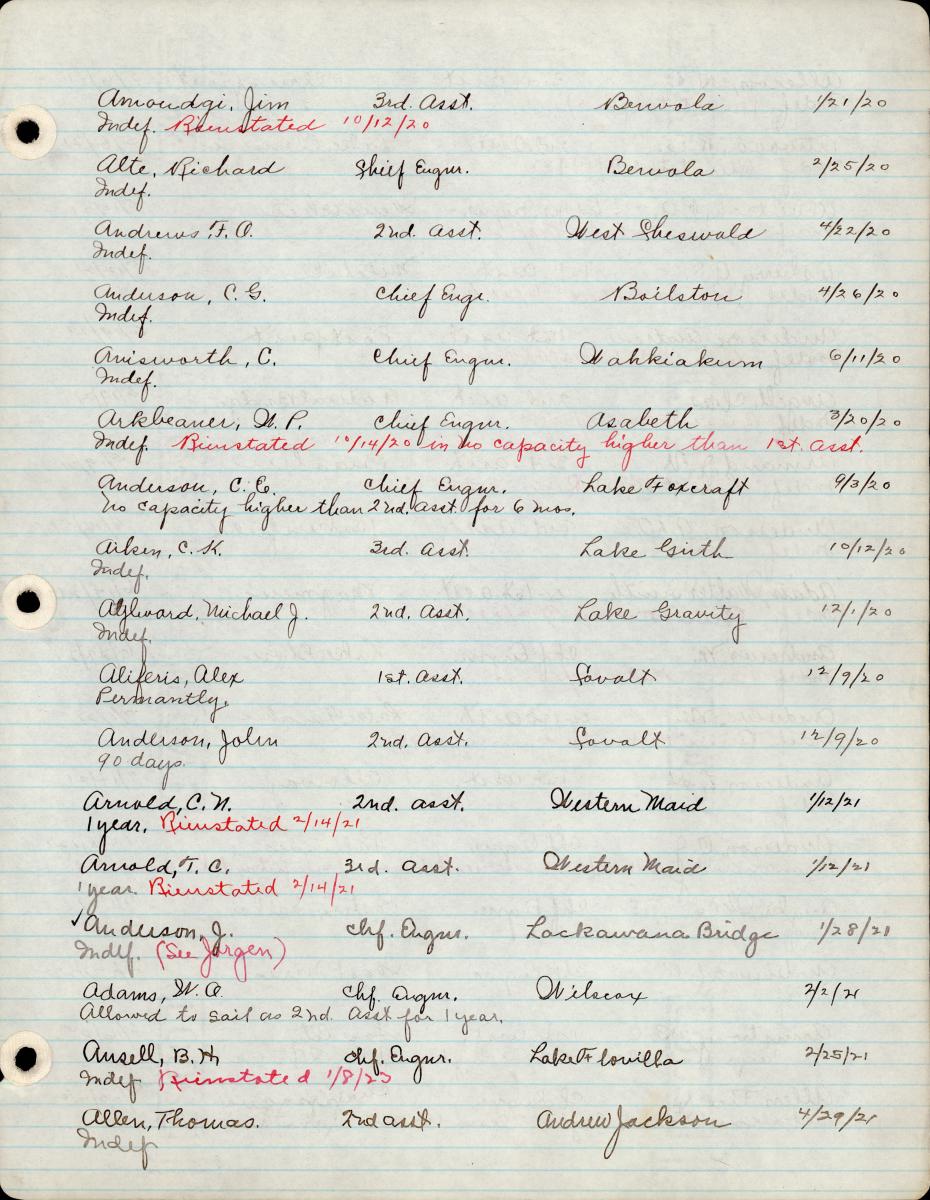 Amoudgi, Jim 3rd. Asst. Benvola 1/21/20
Indef. Rienstated 10/12/20
Alte, Richard Chief Engnr. Benvola 2/25/20
Indef.
Andrews, F. O. 2nd. Asst. West Cheswald 4/22/20
Indef.
Anderson, C. G. Chief Enge. Boilston 4/26/20
Indef.
Ainsworth, C. Chief Engnr. Wahkiakum 6/11/20
Indef.
Arkbeaner, W. P. Chief Engnr. Asabeth 3/20/20
Indef. Rienstated 10/14/20 in no capacity higher than 1st. Asst.
Anderson, C. E. Chief Engnr. Lake Foxcraft 9/3/20
No capacity higher than 2nd. Asst. for 6 mos.
Aiken, C. K. 3rd. Asst. Lake Girth 10/12/20
Indef.
Aylward, Michael J. 2nd. Asst. Lake Gravity 12/1/20
Indef.
Aliferis, Alex 1st. Asst. Sovalt 12/9/20
Permantly.
Anderson, John 2nd. Asst. Sovalt 12/9/20
90 days.
Arnold, C. N. 2nd. asst. Western Maid 1/12/21
1 year. Rienstated 2/14/21
Arnold, T. C. 3rd. asst. Western Maid 1/12/21
1 year. Rienstated 2/14/21
✓Anderson, J. Chf. Engnr. Lackawana Bridge 1/28/21
Indef. (See Jorgen)
Adams, W. A. Chf. Engnr. Wilscox 2/2/21
Allowed to sail as 2nd. Asst for 1 year.
Ansell, B. H. Chf. Engnr. Lake Flovilla 2/25/21
Indef Rienstated 1/8/23
Allen, Thomas. 2nd asst. Andrew Jackson 4/29/21
Indef